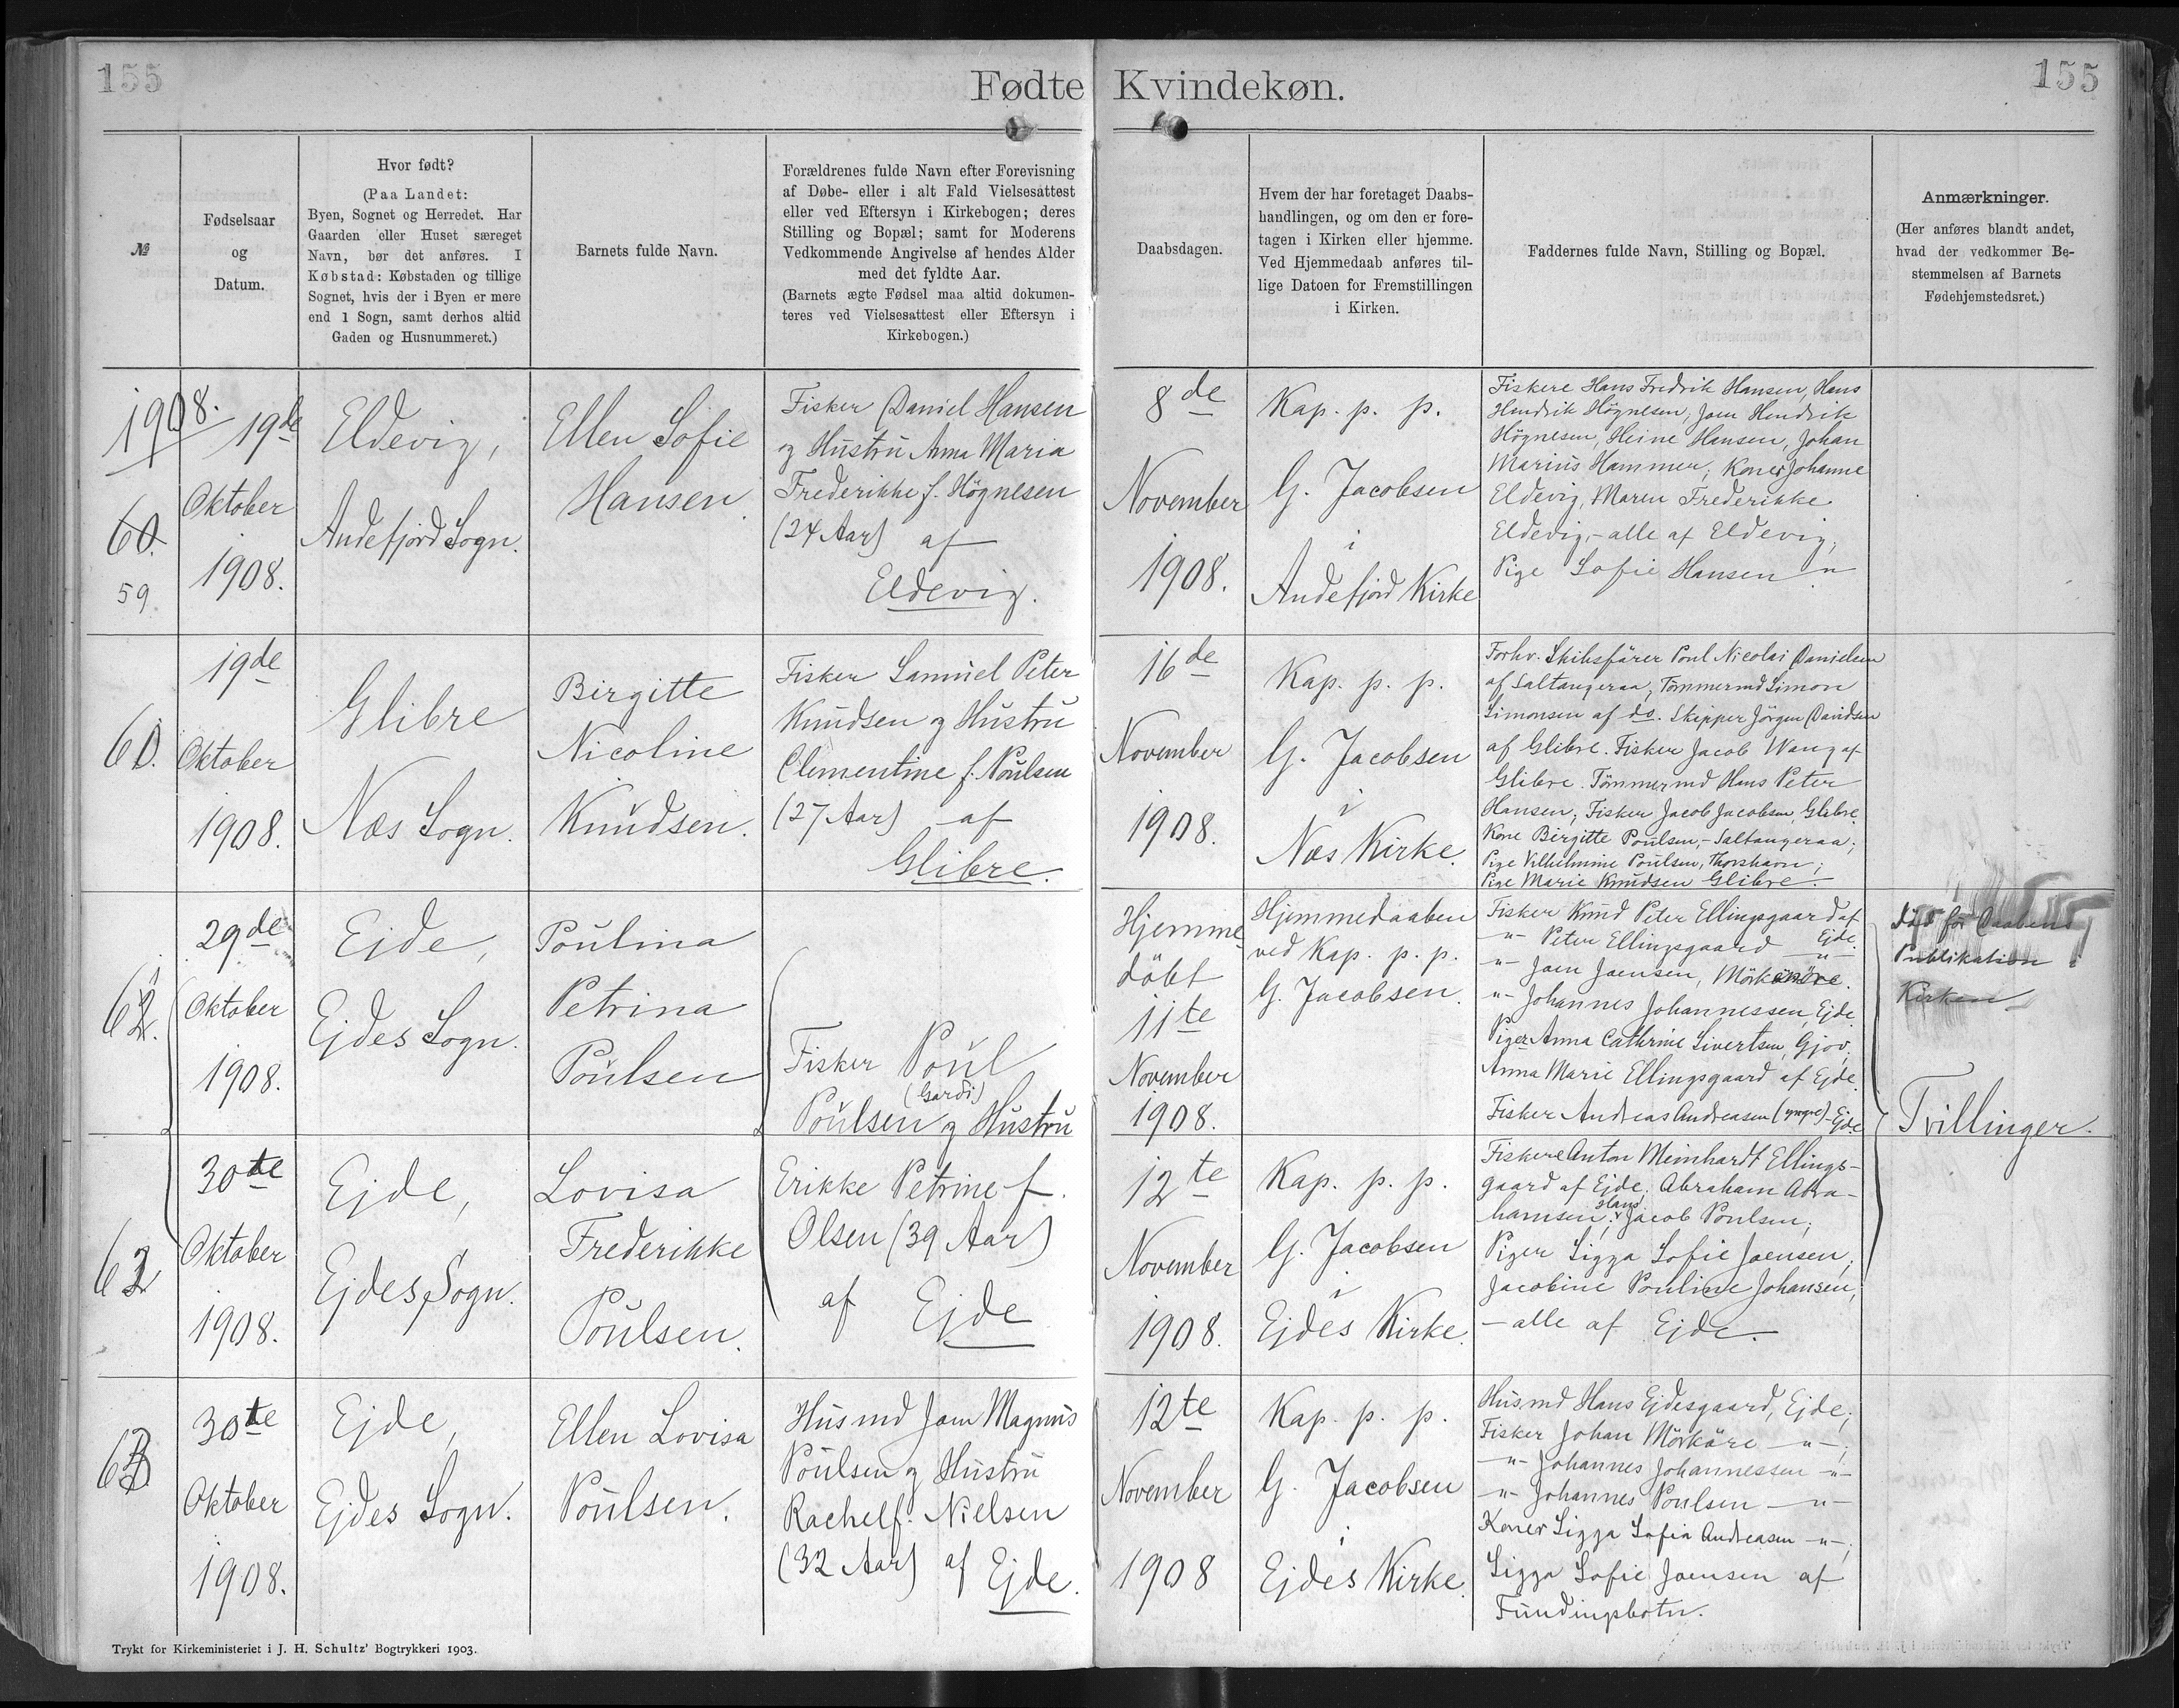 155
Fødte Kvindekøn.
155
№
Fødselsaar
og
Datum.
Hvor født?
(Paa Landet:
Byen, Sognet og Herredet. Har
Gaarden eller Huset særeget
Navn, bør det anføres. I
Købstad: Købstaden og tillige
Sognet, hvis der i Byen er mere
end 1 Sogn, samt derhos altid
Gaden og Husnummeret.)
Barnets fulde Navn.
Forældrenes fulde Navn efter Forevisning
af Døbe- eller i alt Fald Vielsesattest
eller ved Eftersyn i Kirkebogen; deres
Stilling og Bopæl; samt for Moderens
Vedkommende Angivelse af hendes Alder
med det fyldte Aar.
(Barnets ægte Fødsel maa altid dokumen-
teres ved Vielsesattest eller Eftersyn i
Kirkebogen.)
Daabsdagen.
Hvem der har foretaget Daabs-
handlingen, og om den er fore-
tagen i Kirken eller hjemme.
Ved Hjemmedaab anføres til-
lige Datoen for Fremstillingen
i Kirken.
Faddernes fulde Navn, Stilling og Bopæl.
Anmærkninger.
(Her anføres blandt andet,
hvad der vedkommer Be-
stemmelsen af Barnets
Fødehjemstedsret.)
1908.
60.
59
19de
Oktober
1908.
Eldevig,
Andefjord Sogn.
Ellen Sofie
Hansen.
Fisker Daniel Hansen
og Hustru Anna Maria
Frederikke f. Högnesen
(24 Aar) af
Eldevig.
8de
November
1908.
Kap. p. p.
G. Jacobsen
i
Andefjord Kirke
Fiskere Hans Fredrik Hansen, Hans
Hendrik Högnesen, Joen Hendrik
Högnesen, Heine Hansen, Johan
Marius Hammer; Koner Johanne
Eldevig, Maren Frederikke
Eldevig, - alle af Eldevig;
Pige Sofie Hansen "
60.
19de
Oktober
1908.
Glibre
Næs Sogn.
Birgitte
Nicoline
Knudsen.
Fisker Samuel Peter
Knudsen og Hustru
Clementine f. Poulsen
(27 Aar) af
Glibre.
16de
November
1908.
Kap. p. p.
G. Jacobsen
i
Næs Kirke.
Forhv. Skibsfører Poul Nicolai Danielsen
af Saltangeraa; Tømmermd Simon
Simonsen af do. Skipper Jörgen Davidsen
af Glibre. Fisker Jacob Wang af
Glibre. Tömmermd Hans Peter
Hansen; Fisker Jacob Jacobsen, Glibre.
Kone Birgitte Poulsen, - Saltangeraa;
Pige Vilhelmine Poulsen, Thorshavn;
Pige Marie Knudsen Glibre.
61.
29de
Oktober
1908.
Ejde,
Ejdes Sogn.
Poulina
Petrina
Poulsen
Fisker Poul
(Gardi)
Poulsen og Hustru
Erikke Petrine f.
Olsen (39 Aar)
af Ejde
Hjemme
döbt
11te
November
1908.
Hjemmedaaben
ved Kap. p. p.
G. Jacobsen.
Fisker Knud Peter Ellingsgaard af
-"- Peter Ellingsgaard Ejde.
-"- Joen Joensen, Mörköre.
-"- Johannes Johannessen, Ejde.
Piger Anna Cathrine Sivertsen, Gjov,
Anna Marie Ellingsgaard af Ejde.
Fisker Andreas Andreasen (yngre) - Ejde
Död för Daabens
Publikation i
Kirken
Tvillinger.
62
30te
Oktober
1908.
Ejde,
Ejdes Sogn.
Lovisa
Frederikke
Poulsen.
12te
November
1908.
Kap. p. p.
G. Jacobsen
i
Ejdes Kirke.
Fiskere Anton Meinhardt Ellings-
gaard af Ejde, Abraham Abra-
hamsen, Hans Jacob Poulsen;
Piger Sigga Sofie Joensen,
Jacobine Pouline Johansen,
- alle af Ejde.
63
30te
Oktober
1908.
Ejde,
Ejdes Sogn.
Ellen Lovisa
Poulsen.
Husmd Joen Magnus
Poulsen og Hustru
Rachel f. Nielsen
(32 Aar) af Ejde.
12te
November
1908
Kap. p. p.
G. Jacobsen
i
Ejdes Kirke.
Husmd Hans Ejdesgaard, Ejde;
Fisker Johan Mörköre -"-;
-"- Johannes Johannessen -"-
-"- Johannes Poulsen -"-
Koner Sigga Sofia Andreasen -"-;
Sigga Sofie Joensen af
Fundingsbotn.
Trykt for Kirkeministeriet i J. H. Schultz' Bogtrykkeri 1903.